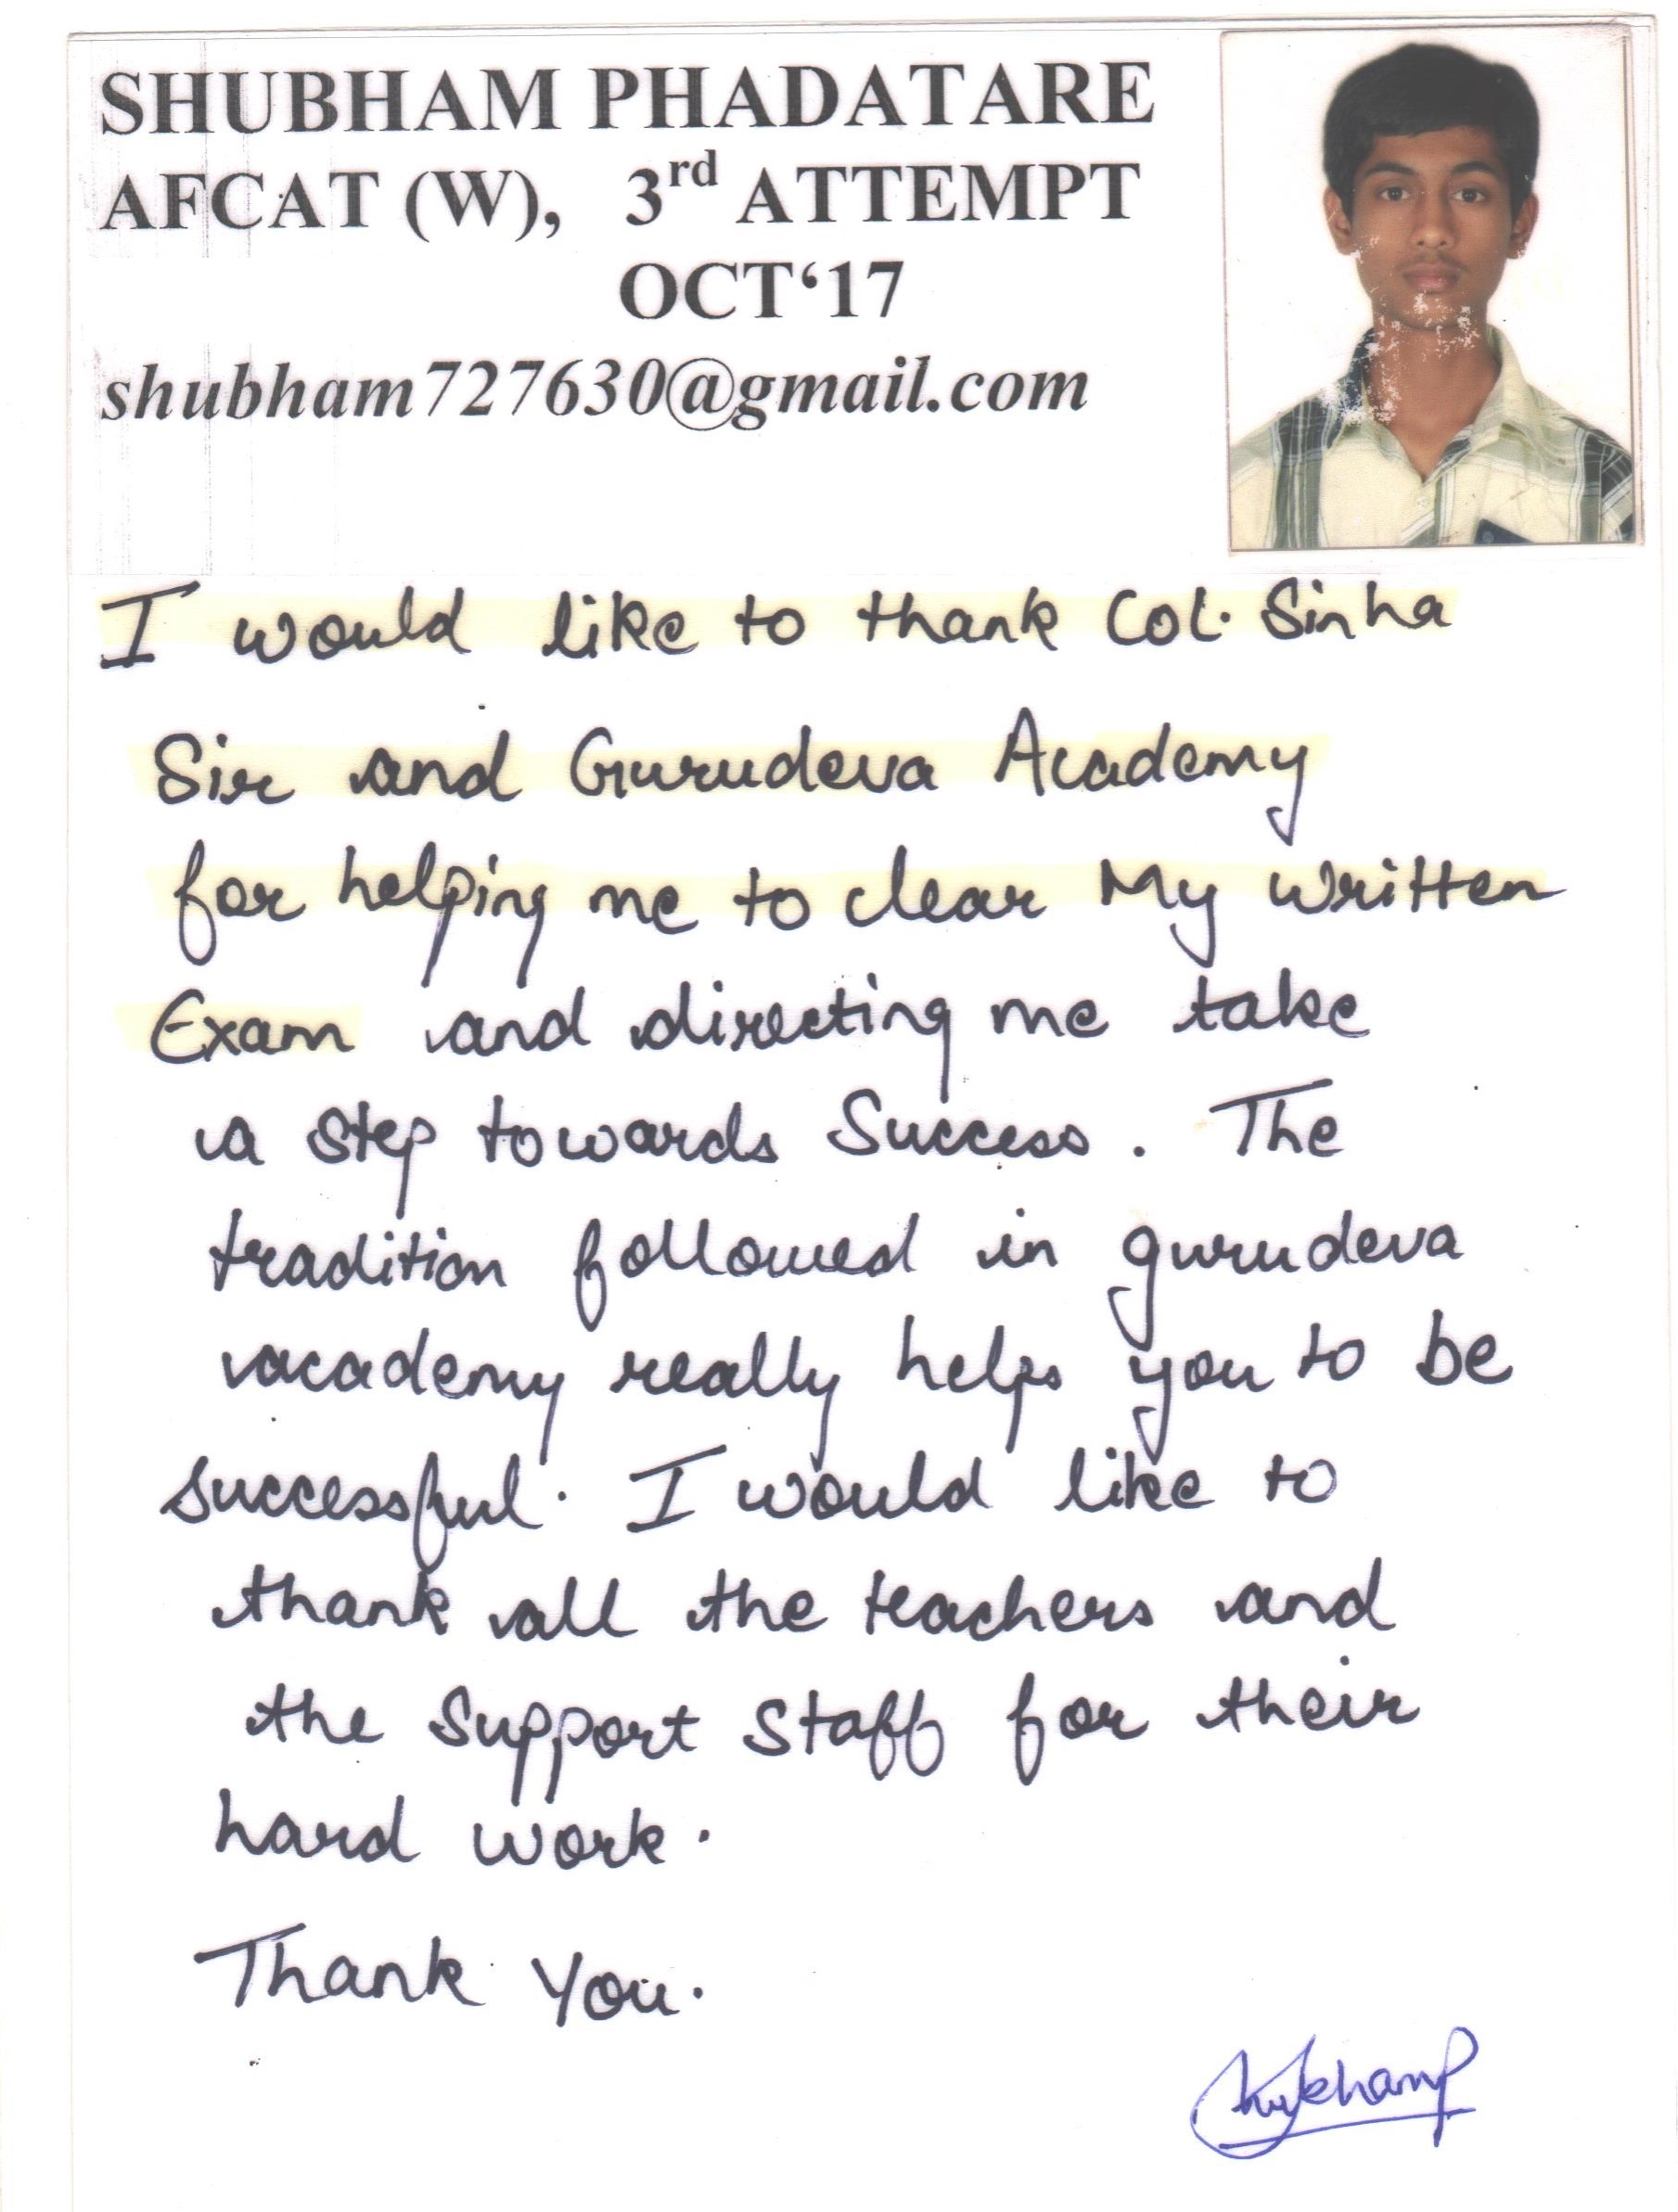 SHUBHAM PHADATARE
AFCAT (W), 3rd ATTEMPT
OCT‘17
shubham727630@gmail.com
I would like to thank Col. Sinha
Sir and Gurudeva Academy
for helping me to clear My written
Exam and directing me take
a step towards Success. The
tradition followed in gurudeva
academy really helps you to be
successful. I would like to
thank all the teachers and
the support staff for their
hard work.
Thank You.